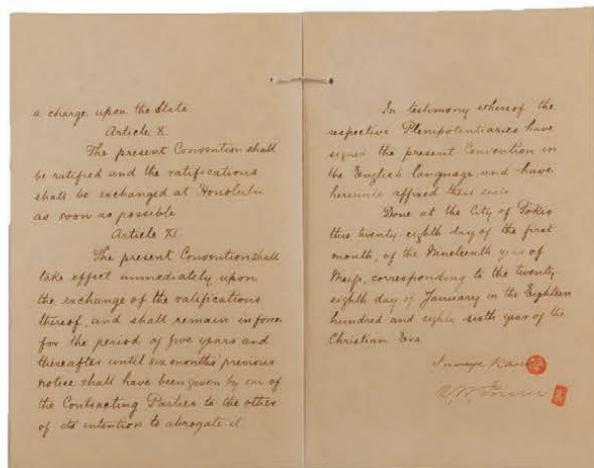 a charge upon the State
Article X.
The present Convention shall
be ratified and the ratifications
shall be exchanged at Honolulu
as soon as possible
Article XI
The present Convention shall
take effect immediately upon
the exchange of the ratifications
thereof, and shall remain in force
for the period of five years and
thereafter until six months' previous
notice shall have been given by one of
the Contracting Parties to the other
of its intention to abrogate it.
In testimony whereof the
respective Plenipotentiaries have
signed the present Convention in
the English language, and have
hereunto affixed their seals
Done at the City of Tokio
this twenty eighth day of the first
month, of the Nineteenth year of
Meiji, corresponding to the twenty
eighth day of January in the Eighteen
hundred and eighty sixth year of the
Christian Era
Inouye Kaoru